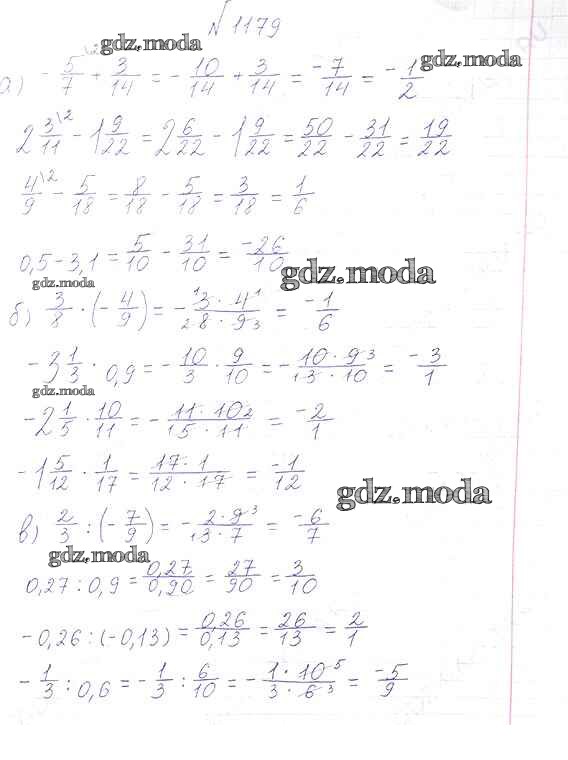 № 1179
gdz.moda
gdz.moda
а) - 5/7 \2 + 3/14 = - 10/14 + 3/14 = -7/14 = -1/2
2 3/11 \2 - 1 9/22 = 2 6/22 - 1 9/22 = 50/22 - 31/22 = 19/22
4/9 \2 - 5/18 = 8/18 - 5/18 = 3/18 = 1/6
0,5 - 3,1 = 5/10 - 31/10 = -26/10
gdz.moda
gdz.moda
б) 3/8 · (- 4/9) = - 3 · 4/8 · 9 = -1/6
-3 1/3 · 0,9 = - 10/3 · 9/10 = - 10 · 9/3 · 10 = -3/1
gdz.moda
-2 1/5 · 10/11 = - 11 · 10/5 · 11 = -2/1
-1 5/12 · 1/17 = 17 · 1/12 · 17 = -1/12
gdz.moda
в) 2/3 : (- 7/9) = - 2 · 9/3 · 7 = -6/7
gdz.moda
0,27 : 0,9 = 0,27/0,90 = 27/90 = 3/10
-0,26 : (-0,13) = 0,26/0,13 = 26/13 = 2/1
- 1/3 : 0,6 = - 1/3 : 6/10 = - 1 · 10/3 · 6 = -5/9